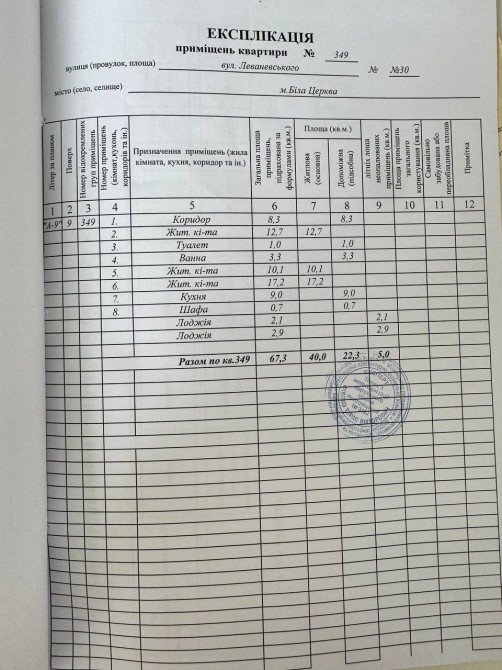 ЕКСПЛІКАЦІЯ
приміщень квартири № 349
вулиця (провулок, площа) вул. Леваневського № №30
місто (село, селище) м.Біла Церква
Літер за планом
Поверх
Номер відокремлених груп приміщень
Номер приміщень (кімнат,кухонь, коридорів та ін.)
Призначення приміщень (жила кімната, кухня, коридор та ін.)
Загальна площа приміщень, підрахована за формулами (кв.м.)
Площа (кв.м.)
Житлова (основна)
Допоміжна (підсобна)
літніх площ неопалюваних приміщень (кв.м.)
Площа приміщень загального користування (кв.м.)
Самовільно забудована або переобладнана площа
Примітка
1 2 3 4 5 6 7 8 9 10 11 12
"А-9" 9 349 1. Коридор 8,3 8,3
2. Жит. кі-та 12,7 12,7
3. Туалет 1,0 1,0
4. Ванна 3,3 3,3
5. Жит. кі-та 10,1 10,1
6. Жит. кі-та 17,2 17,2
7. Кухня 9,0 9,0
8. Шафа 0,7 0,7
Лоджія 2,1 2,1
Лоджія 2,9 2,9
Разом по кв.349 67,3 40,0 22,3 5,0